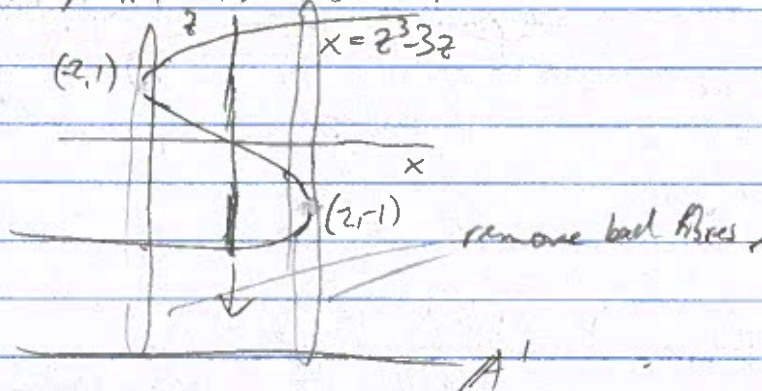 z
x = z³-3z
(-2,1)
x
(2,-1)
remove bad fibres
A¹